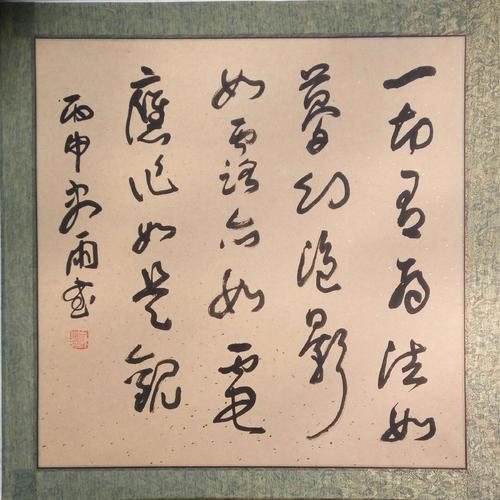 一切有為法如
夢幻泡影
如露亦如電
應作如是觀
丙申雨書